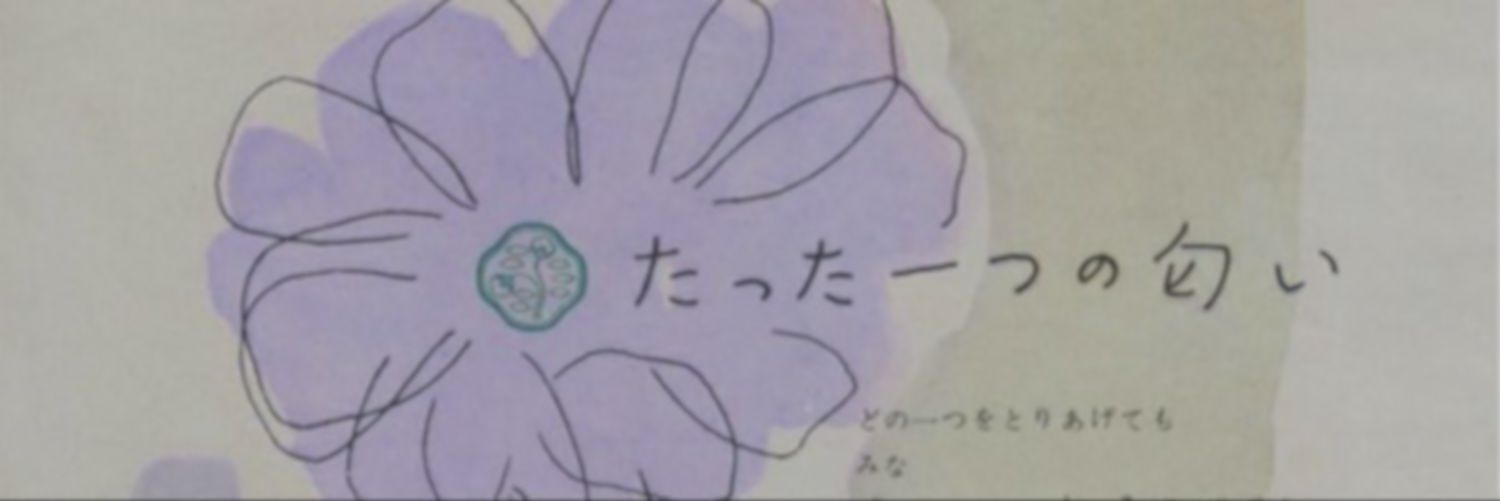 たった一つの匂い
どの一つをとりあげても
みな